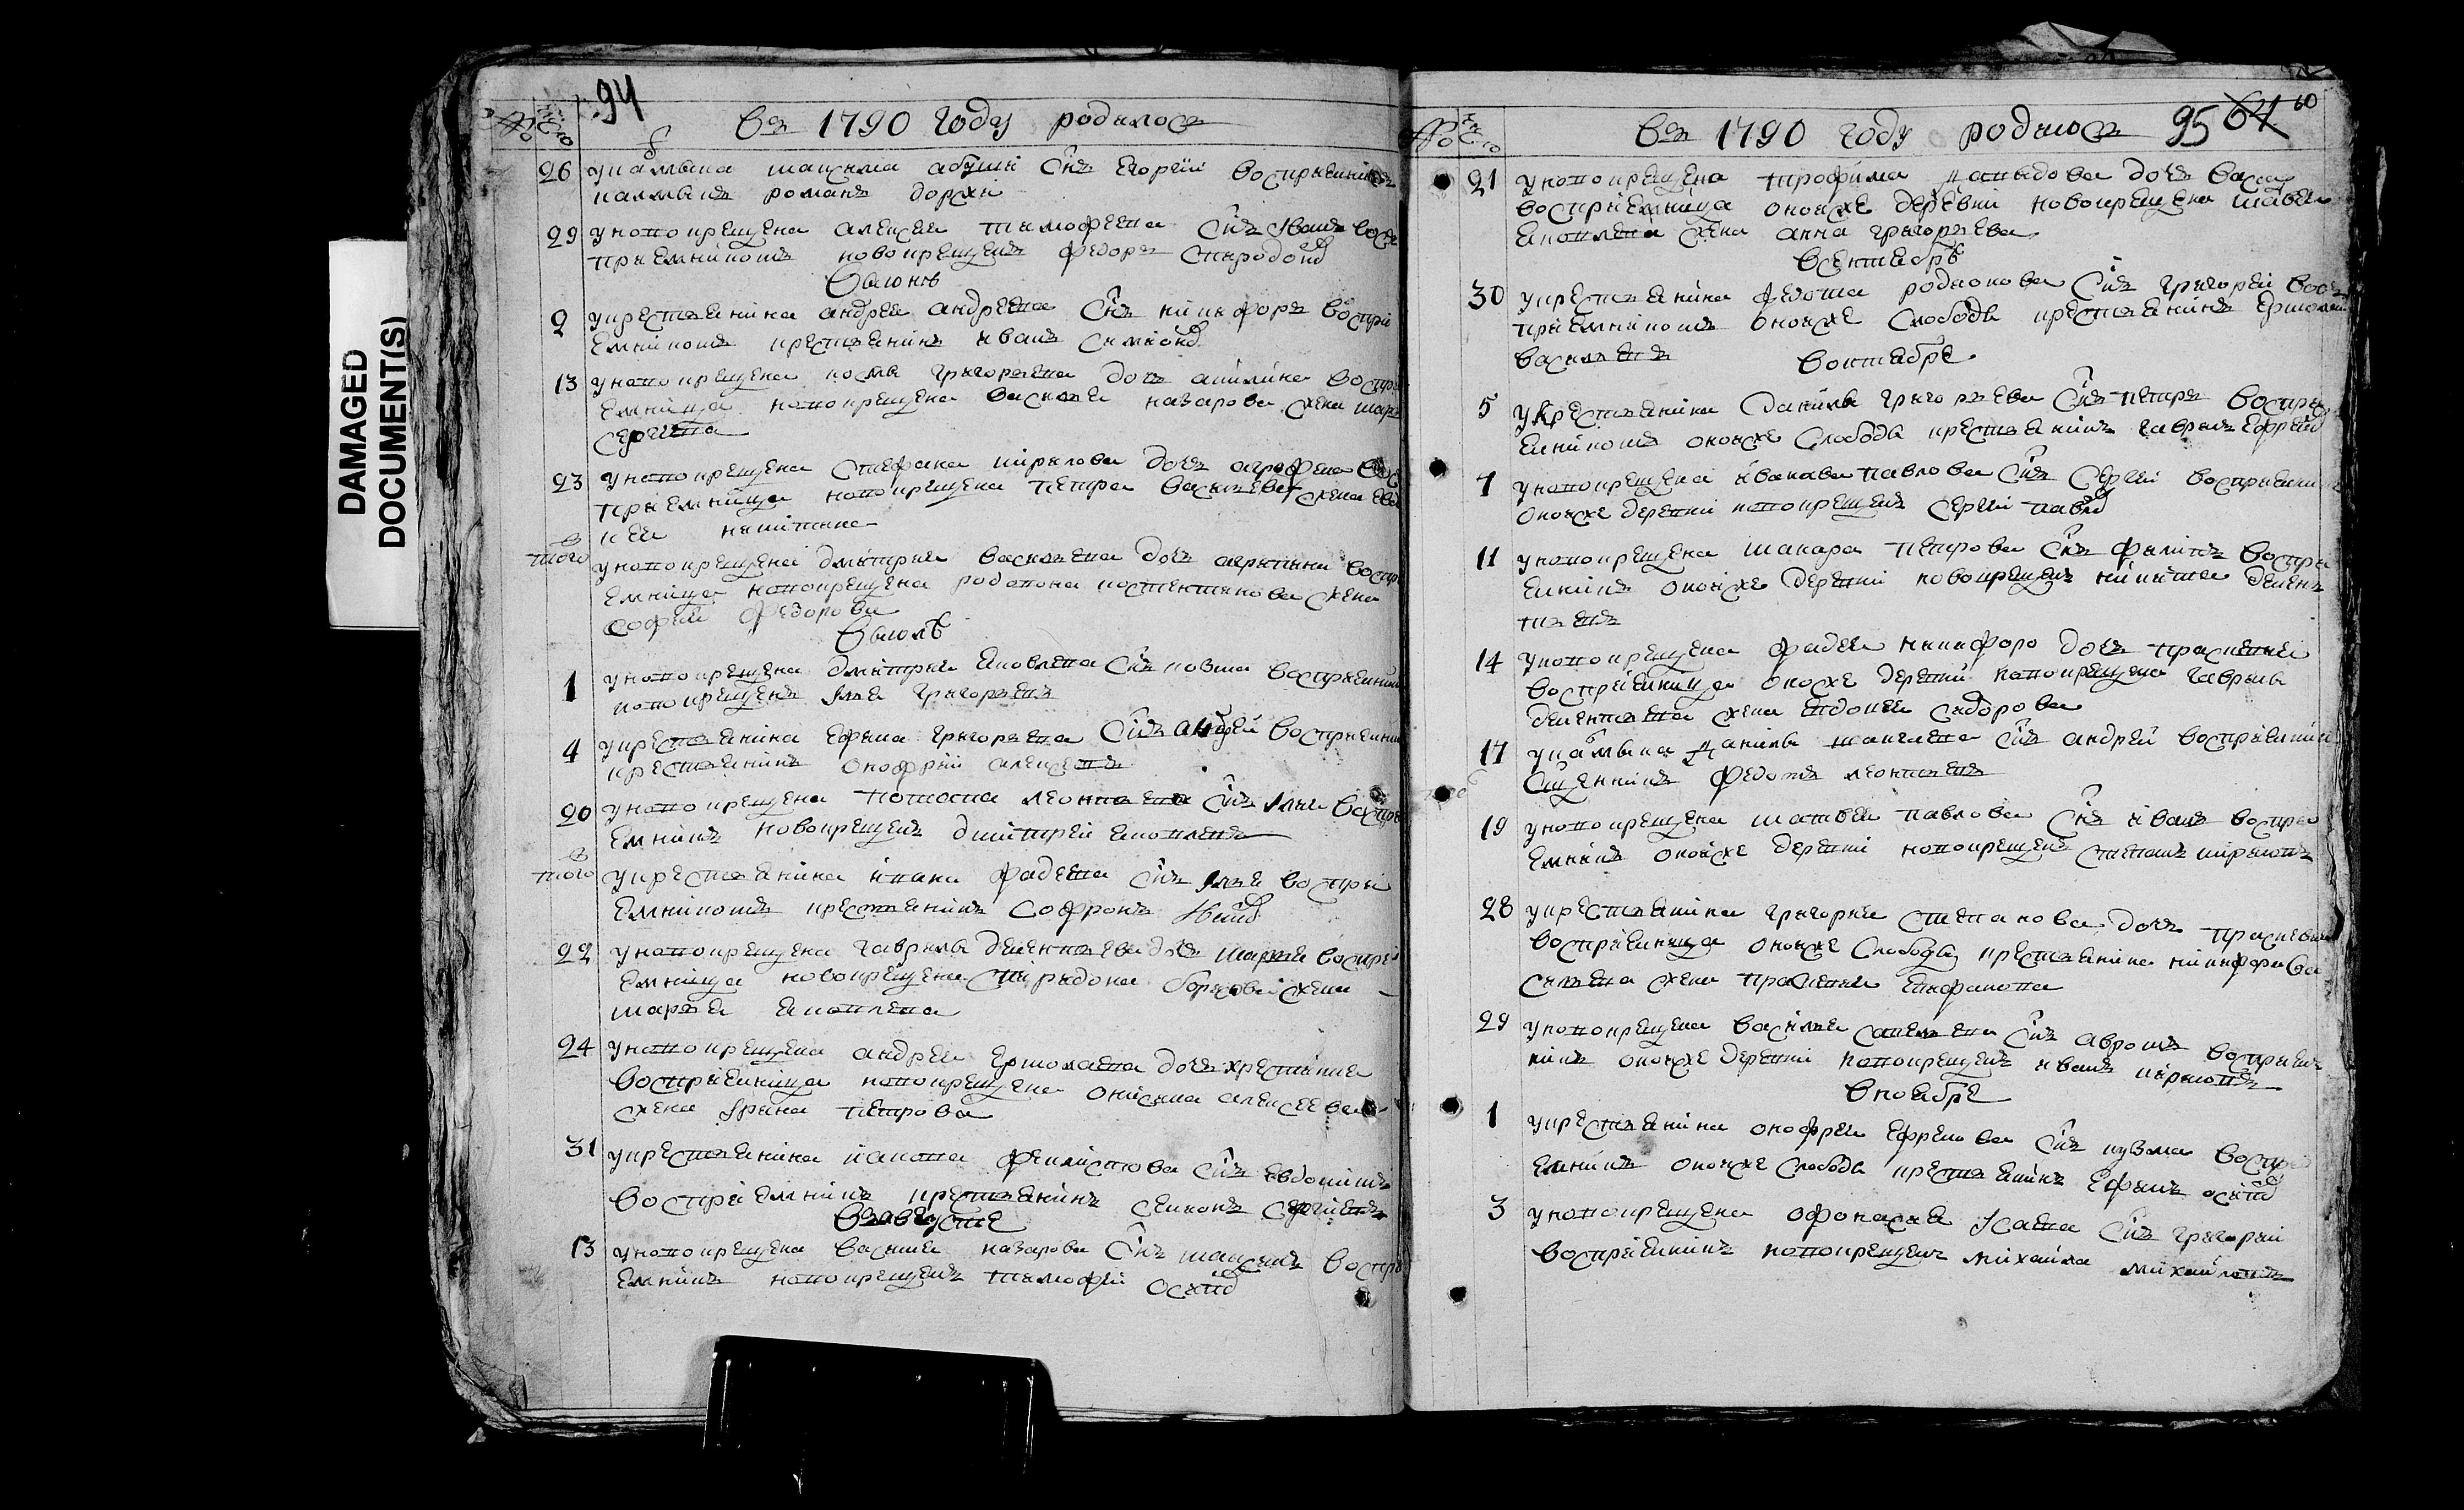 DAMAGED
DOCUMENT(S)
94
Въ 1790 году родилось
26 у калмыка максима снъ Егорій восприемникъ
калмыкъ романъ
29 у новокрещена алексея тимофеева снъ Иванъ вос
приемникомъ новокрещенъ федоръ спиридонов
В июнѣ
2 у крестьянина андрея андреева снъ никифоръ воспри
емникомъ крестьянинъ иванъ симионов
13 у новокрещена козмы григорьева дочь акилина воспри
емница новокрещена василья назарова жена мар
сергеева
23 у новокрещена стефана кирилова дочь агрофена вос
приемница новокрещена петра васильева жена евдо
кея никитина
того у новокрещена дмитрия васильева дочь воспри
емница новокрещена родиона костентинова жена
софия федорова
В июлѣ
1 у новокрещена дмитрия яковлева снъ козма восприемник
новокрещенъ илья григорьевъ
4 у крестьянина ефима григорьева снъ андрей восприемник
крестьянинъ онофрий алексеевъ
20 у новокрещена леонтьева снъ илья воспри
емникъ новокрещенъ дмитрей яковлевъ
того у крестьянина ивана фадеева снъ илья воспри
емникомъ крестьянинъ софронъ
22 у новокрещена гаврила дементьева дочь марья воспри
емница новокрещена спиридона борисова жена
марья яковлева
24 у новокрещена андрея ермолаева дочь хрестина
восприемница новокрещена онисима алексеева
жена ирина петрова
31 у крестьянина иакова феклистова снъ евдокимъ
восприемникъ крестьянинъ семионъ сергиевъ
В августе
13 у новокрещена василья назарова снъ максимъ воспри
емникъ новокрещенъ тимофей осипов
95 61 60
Въ 1790 году родилось
21 у новокрещена трофима давыдова дочь васса
восприемница оной же деревни новокрещена
яковлева жена анна григорьева
В сентябрѣ
30 у крестьянина федота родионова снъ григорей вос
приемникомъ оной же слободы крестьянинъ ермолай
васильевъ
В октябре
5 у крестьянина данилы григорьева снъ петръ воспри
емникомъ оной же слободы крестьянинъ гаврилъ ефремов
7 у новокрещена ивана павлова снъ сергей восприемник
оной же деревни новокрещенъ сергей павлов
11 у новокрещена макара петрова снъ филипъ воспри
емникъ оной же деревни новокрещенъ никита демен
тьевъ
14 у новокрещена фадея никифоро дочь прасковья
восприемница оной же деревни новокрещена гаврила
дементьева жена евдокея сидорова
17 у калмыка данилы снъ андрей восприемник
сщенникъ федотъ леонтьевъ
19 у новокрещена матвея павлова снъ иванъ воспри
емникъ оной же деревни новокрещенъ степанъ кириловъ
28 у крестьянина григорья степанова дочь прасковья
восприемница оной же слободы крестьянина никифора
жена прасковья епифанова
29 у новокрещена василья савельева снъ авромъ восприем
никъ оной же деревни новокрещенъ иванъ кириловъ
В ноябре
1 у крестьянина онофрея ефремова снъ кузма воспри
емникъ оной же слободы крестьянинъ ефимъ осипов
3 у новокрещена офонасья исаева снъ григорий
восприемникъ новокрещенъ михаила михайловъ